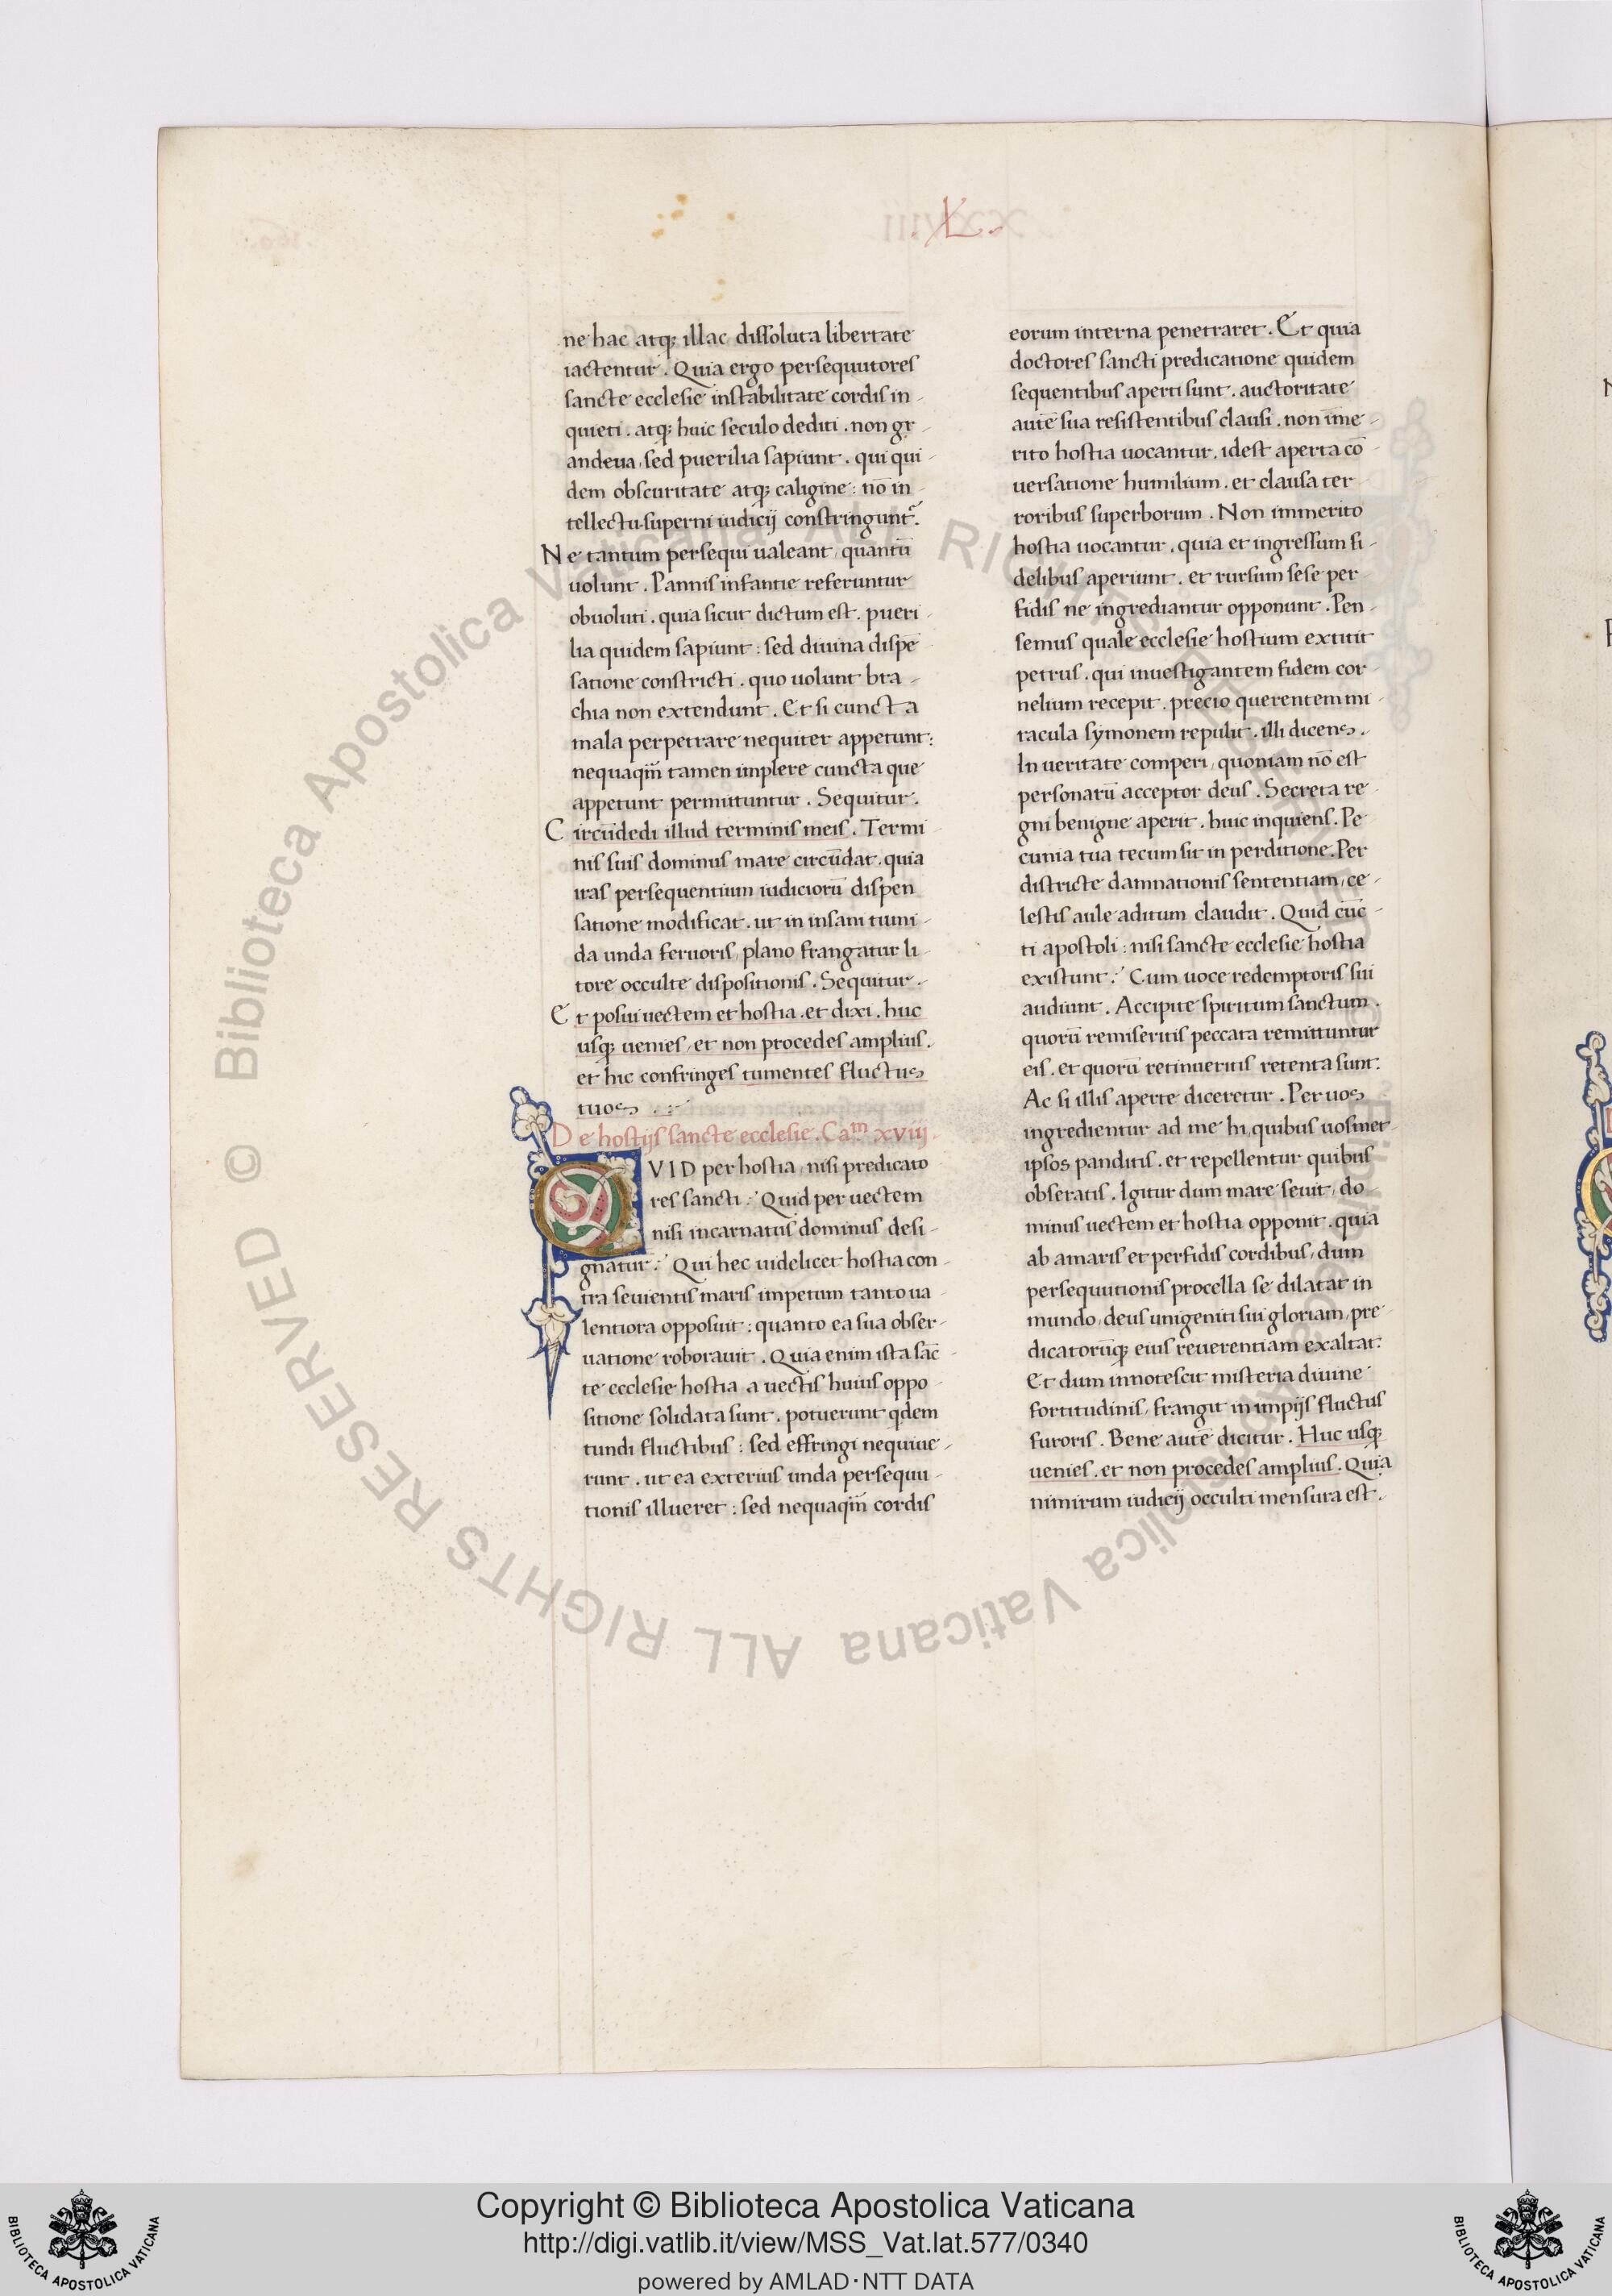 .L.
ne hac atq; illac dissoluta libertate
iactentur. Quia ergo persequutores
sancte ecclesie instabilitate cordis in-
quieti. atq; huic seculo dediti. non gr-
andeua, sed puerilia sapiunt. qui qui-
dem obscuritate atq; caligine: nō in-
tellectu superni iudicij constringunt̃.
Ne tantum persequi ualeant, quantū
uolunt. Pannis infantie referuntur
obuoluti. quia sicut dictum est. pueri-
lia quidem sapiunt: sed diuina dispē
satione constricti. quo uolunt bra-
chia non extendunt. Et si cuncta
mala perpetrare nequiter appetunt:
nequaqm̄ tamen implere cuncta que
appetunt permittuntur. Sequitur.
Circūdedi illud terminis meis. Termi
nis suis dominus mare circūdat. quia
iras persequentium iudiciorū dispen
satione modificat. ut in insani tumi-
da unda feruoris, plano frangatur li-
tore occulte dispositionis. Sequitur.
Et posui uectem et hostia. et dixi. huc
usq; uenies, et non procedes amplius.
et hic confringes tumentes fluctus
tuos
De hostijs sancte ecclesie. Caᵐ xviij.
QVID per hostia, nisi predicato
res sancti? Quid per uectem
nisi incarnatus dominus desi-
gnatur? Qui hec uidelicet hostia con-
tra seuientis maris impetum tanto ua
lentiora opposuit: quanto ea sua obser-
uatione roborauit. Quia enim ista sāc-
te ecclesie hostia a uectis huius oppo-
sitione solidata sunt. potuerunt qdem
tundi fluctibus: sed effringi nequiue-
runt. ut ea exterius unda persequu-
tionis illueret: sed nequaqm̄ cordis
eorum interna penetraret. Et quia
doctores sancti predicatione quidem
sequentibus aperti sunt. auctoritate
autē sua resistentibus clausi. non īme-
rito hostia uocantur. idest aperta cō-
uersatione humilium. et clausa ter-
roribus superborum. Non immerito
hostia uocantur. quia et ingressum fi-
delibus aperiunt. et rursum sese per
fidis ne ingrediantur opponunt. Pen-
semus quale ecclesie hostium extitit
petrus. qui inuestigantem fidem cor-
nelium recepit. precio querentem mi-
racula symonem repulit. illi dicens.
In ueritate comperi, quoniam nō est
personarū acceptor deus. Secreta re-
gni benigne aperit. huic inquiens. Pe-
cunia tua tecum sit in perditione. Per
districte damnationis sententiam, ce-
lestis aule aditum claudit. Quid cūc-
ti apostoli: nisi sancte ecclesie hostia
existunt? Cum uoce redemptoris sui
audiunt. Accipite spiritum sanctum.
quorū remiseritis peccata remittuntur
eis. et quorū retinueritis retenta sunt.
Ac si illis aperte diceretur. Per uos
ingredientur ad me hi, quibus uosmet
ipsos panditis. et repellentur quibus
obseratis. Igitur dum mare seuit, do-
minus uectem et hostia opponit. quia
ab amaris et perfidis cordibus, dum
persequutionis procella se dilatat in
mundo, deus unigeniti sui gloriam, pre-
dicatorūq; eius reuerentiam exaltat.
Et dum innotescit misteria diuine
fortitudinis, frangit in impijs fluctus
furoris. Bene autē dicitur. Huc usq;
uenies. et non procedes amplius. Quia
nimirum iudicij occulti mensura est.
© Biblioteca Apostolica Vaticana ALL RIGHTS RESERVED © Biblioteca Apostolica Vaticana ALL RIGHTS RESERVED
BIBLIOTECA APOSTOLICA VATICANA
Copyright © Biblioteca Apostolica Vaticana
http://digi.vatlib.it/view/MSS_Vat.lat.577/0340
powered by AMLAD·NTT DATA
BIBLIOTECA APOSTOLICA VATICANA